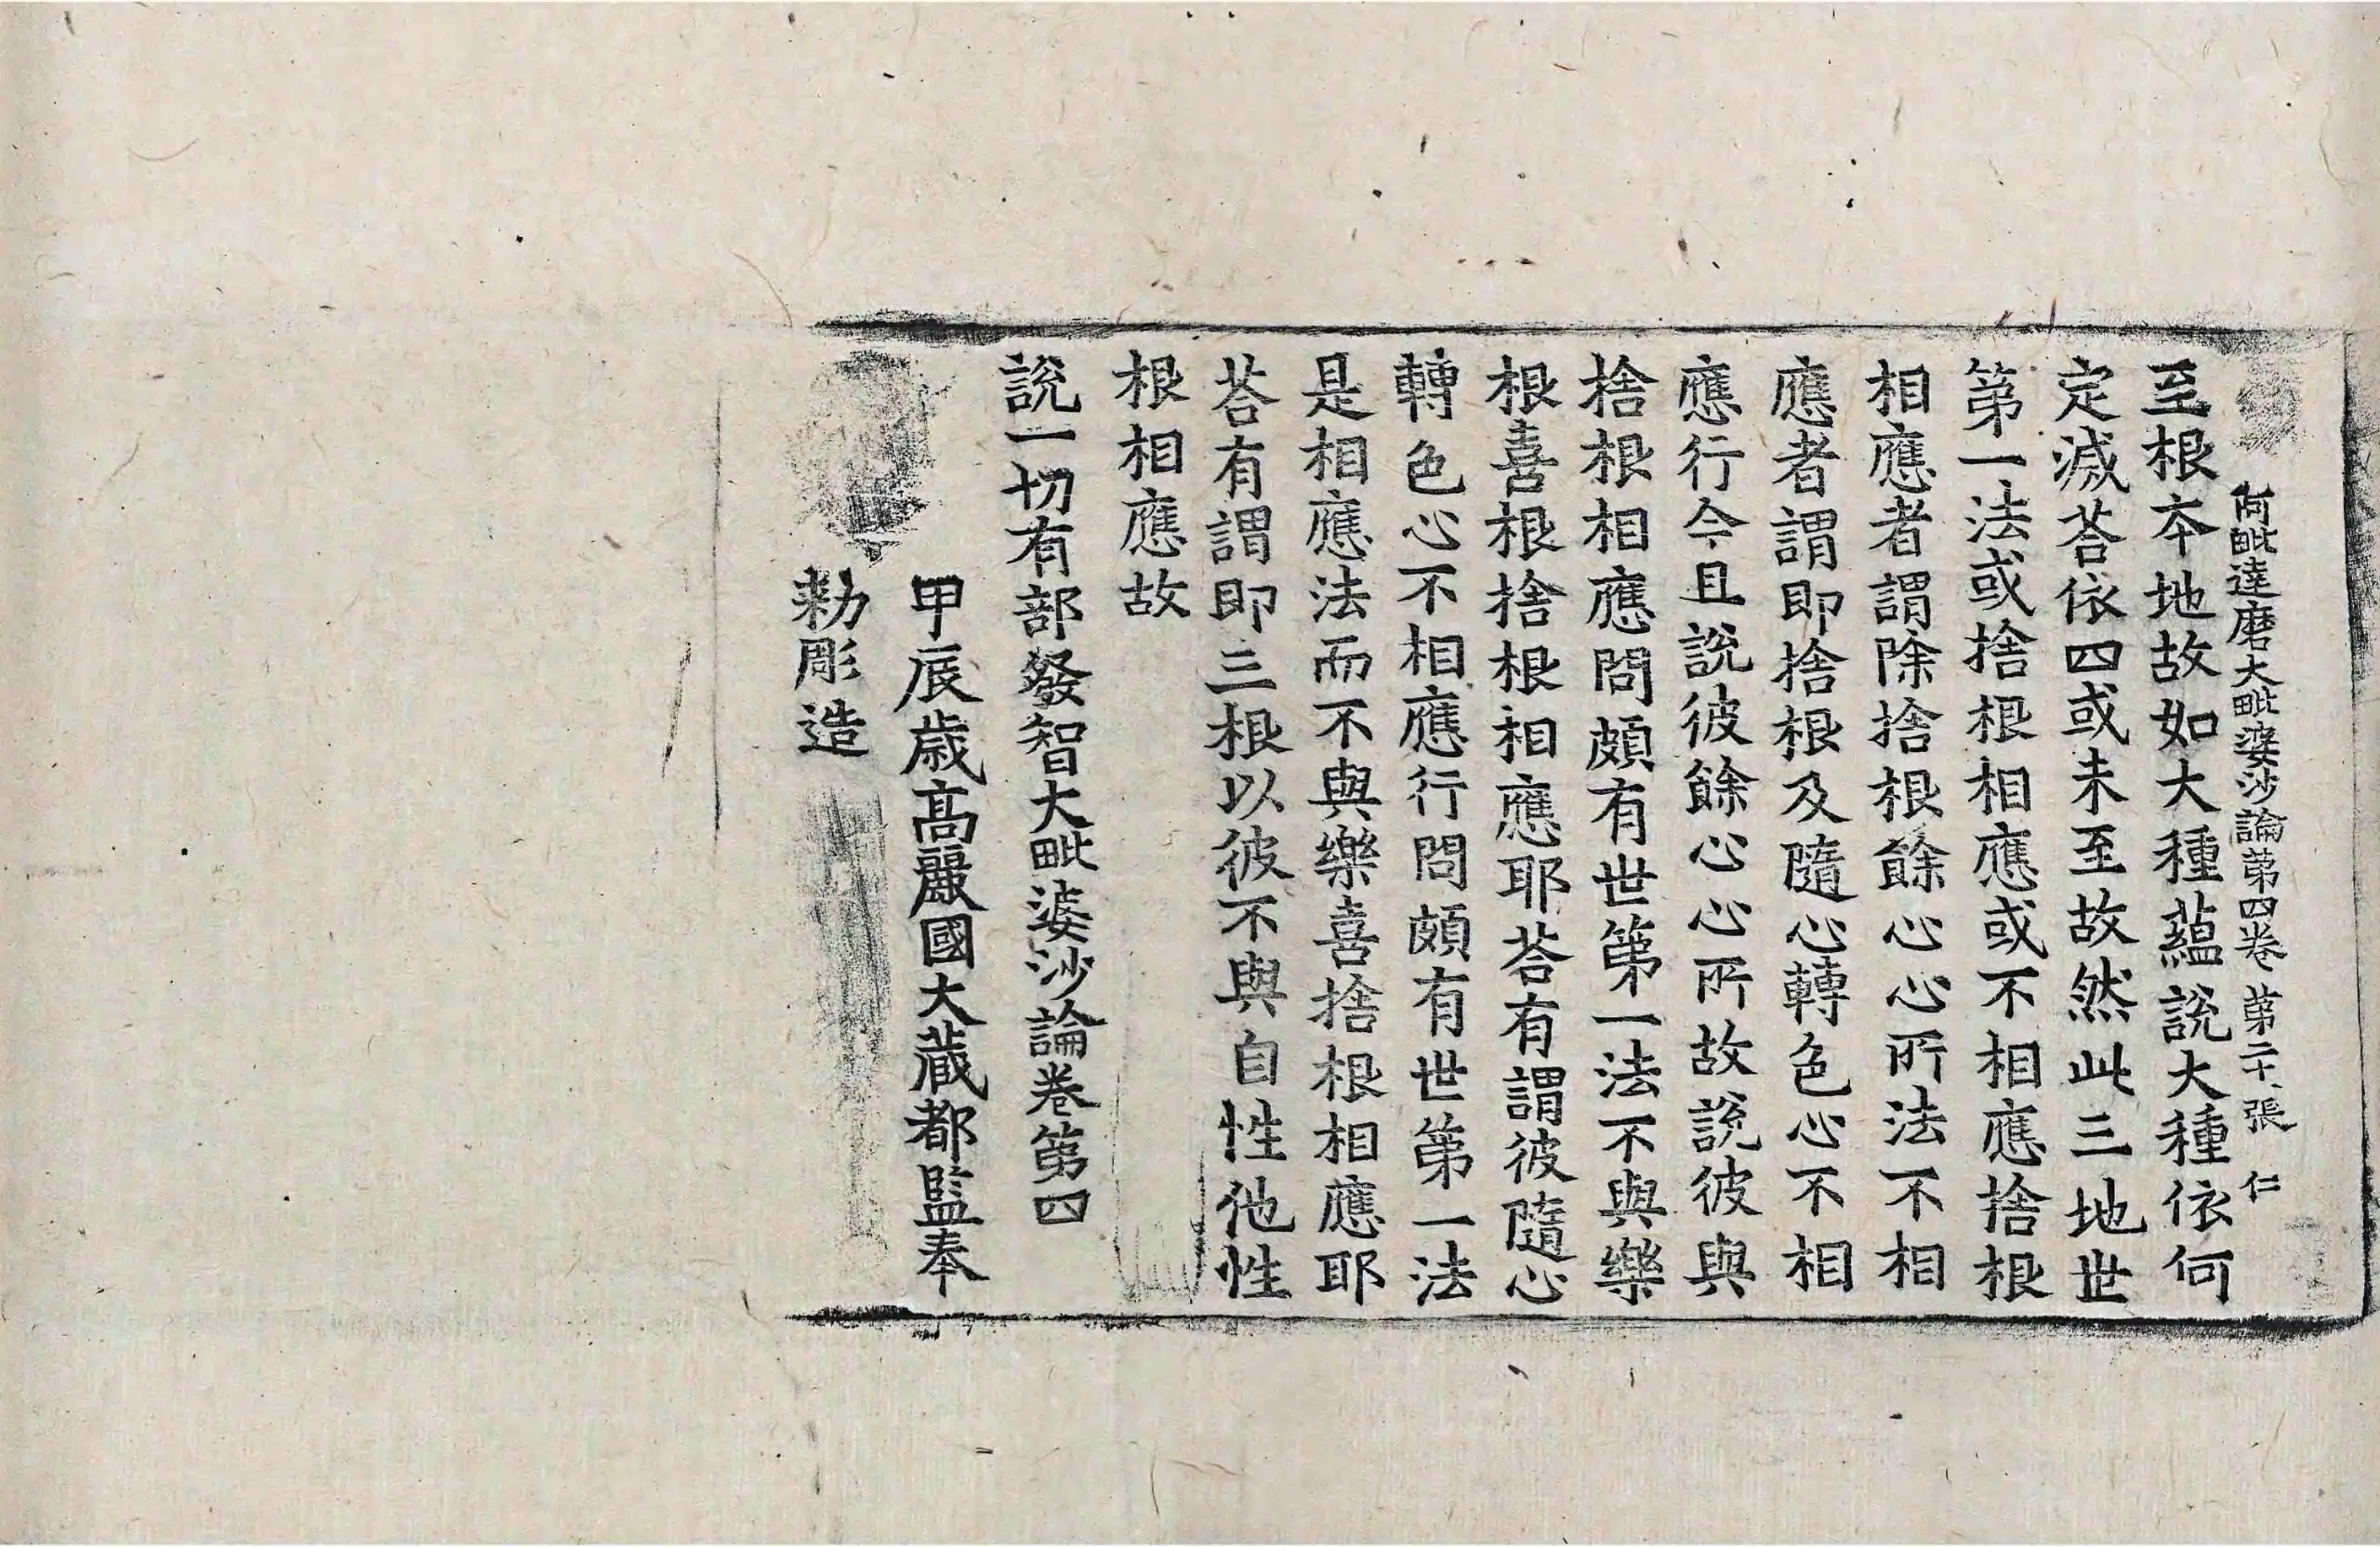 阿毗達磨大毗婆沙論第四卷 第二十張 仁
至根夲地故如大種蘊說大種依何
定滅荅依四或未至故然此三地世
第一法或捨根相應或不相應捨根
相應者謂除捨根餘心心所法不相
應者謂即捨根及隨心轉色心不相
應行今且說彼餘心心所故說彼與
捨根相應問頗有世第一法不與樂
根喜根捨根相應耶荅有謂彼隨心
轉色心不相應行問頗有世第一法
是相應法而不與樂喜捨根相應耶
荅有謂即三根以彼不與自性他性
根相應故
說一切有部發智大毗婆沙論卷第四
甲辰歲高麗國大藏都監奉
勑彫造